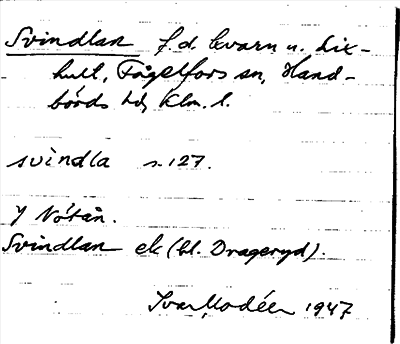 Svindlan f.d. kvarn u. Lix-
hult, Fågelfors sn, Hand-
börds hd, Klm. l.
svindla s. 127.
Y Nötån.
Svindlan ek (bl. Drageryd).
Ivar Modéer 1947